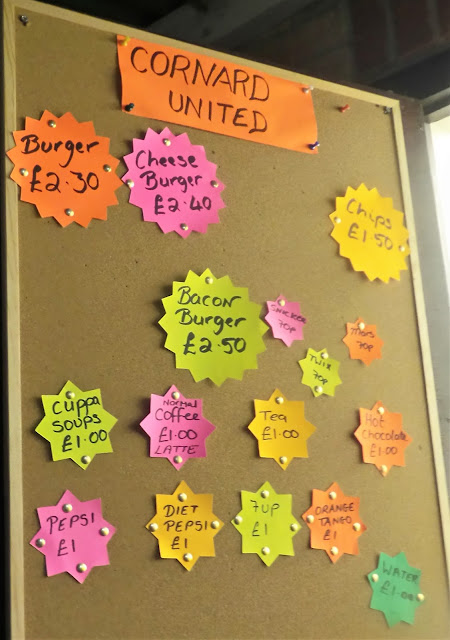 CORNARD
UNITED
Burger
£2.30
Cheese
Burger
£2.40
Chips
£1.50
Bacon
Burger
£2.50
SNICKERS
70p
Mars
70p
TWIX
70p
Cuppa
Soups
£1.00
Normal
Coffee
£1.00
LATTE
Tea
£1.00
Hot
Chocolate
£1.00
PEPSI
£1
DIET
PEPSI
£1
7up
£1
ORANGE
TANGO
£1
WATER
£1.00